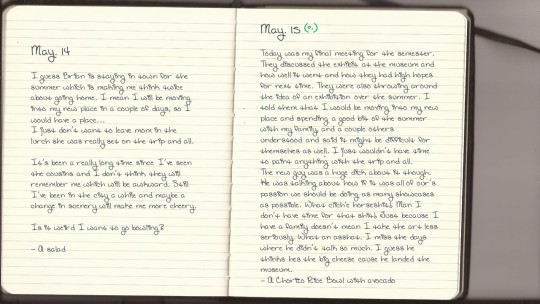 May. 14
I guess Brian is staying in town for the
summer which is making me think twice
about going home. I mean I will be moving
into my new place in a couple of days, so I
would have a place...
I just don't want to leave mom in the
lurch she was really set on the trip and all.
It's been a really long time since I've seen
the cousins and I don't think they will
remember me which will be awkward. Still
I've been in the city a while and maybe a
change in scenery will make me more cheery.
Is it weird I want to go bowling?
- A salad
May. 15 (0.)
Today was my final meeting for the semester.
They discussed the exhibit at the museum and
how well it went and how they had high hopes
for next time. They were also throwing around
the idea of an exhibition over the summer. I
told them that I would be moving into my new
place and spending a good bit of the summer
with my family, and a couple others
understood and said it might be difficult for
themselves as well. I just wouldn't have time
to paint anything with the trip and all.
The new guy was a huge ditch about it though.
He was talking about how if it was all of our's
passion we should be doing as many showcases
as possible. What horseshit. Man I
don't have time for that shit. Just because I
have a family doesn't mean I take the art less
seriously. What an asshat. I miss the days
where he didn't talk so much. I guess he
thinks hes the big cheese cause he landed the
museum.
- A Chorizo Rice Bowl with avocado